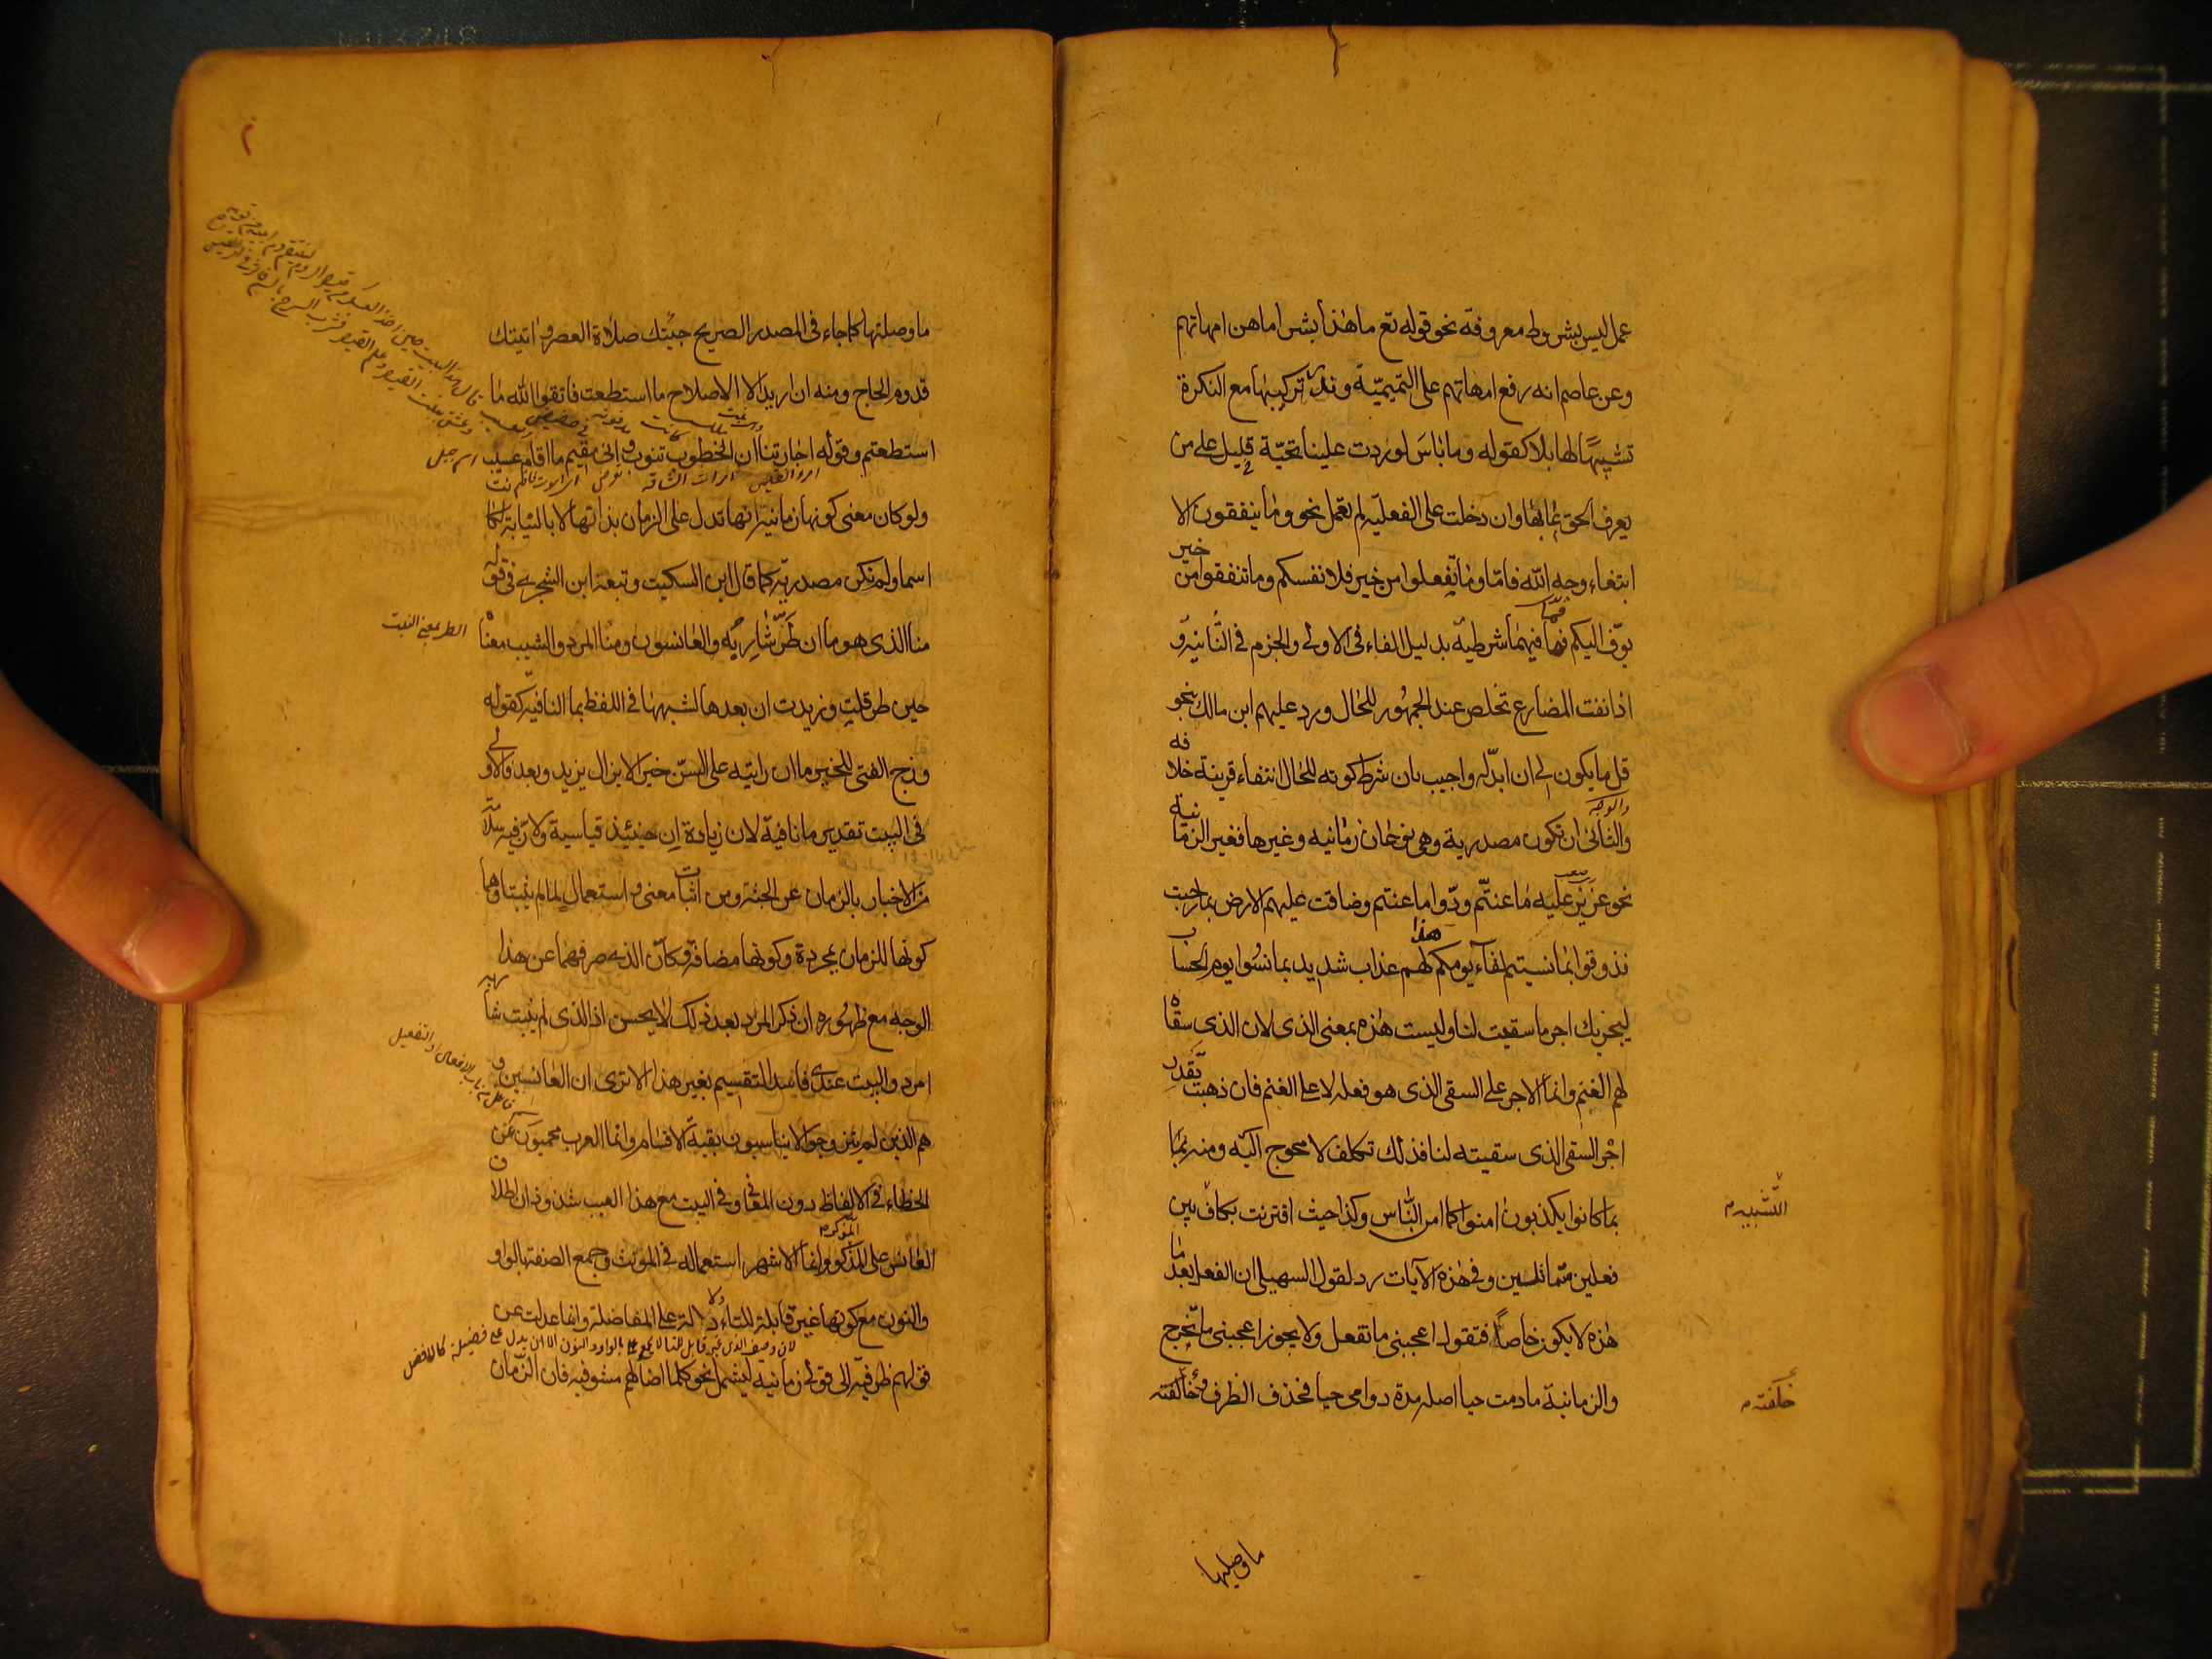 عمل ليس بشروط معروفة نحو قوله تع ما هذا بشرا ما هن امهاتهم
وعن عاصم انه رفع امهاتهم على التميمية وندر تركيبها مع النكرة
تشبيها لها بلا كقوله وما باس لو ردت علينا تحية قليل على من
يعرف الحق عابها وان دخلت على الفعلية لم تعمل نحو وما تنفقون الا
ابتغاء وجه الله فاما وما تفعلوا من خير فلانفسكم وما تنفقوا من خير
يوف اليكم فما فيهما شرطية بدليل الفاء في الاولى والجزم في الثانية و
اذا نفت المضارع تخلص عند الجمهور للحال ورد عليهم ابن مالك بنحو
قل ما يكون لي ان ابدله واجيب بان شرط كونه للحال انتفاء قرينة خلافه
والوجه
والثاني ان تكون مصدرية وهي نوعان زمانيه وغيرها فغير الزمانية
نحو عزيز عليه ما عنتم ودوا ما عنتم وضاقت عليهم الارض بما رحبت
فذوقوا بما نسيتم لقاء يومكم هذا لهم عذاب شديد بما نسوا يوم الحساب
ليجزيك اجر ما سقيت لنا وليست هذه بمعنى الذي لان الذي سقاه
لهم الغنم وانما الاجر على السقي الذي هو فعله لا على الغنم فان ذهبت تقدر
اجر السقي الذي سقيته لنا فذلك تكلف لا محوج اليه ومنه بما
بما كانوا يكذبون امنوا كما امن الناس وكذا حيث اقترنت بكاف بين
التشبيه م
فعلين متماثلين وفي هذه الآيات رد لقول السهيلي ان الفعل بعد ما
هذه لا يكون خاصا فتقول اعجبني ما تفعل ولا يجوز اعجبني ما تخرج
والزمانية ما دمت حيا اصله مدة دوامي حيا فحذف الظرف وخالفته
خلفته م
ما وصليها
ما وصلتها كما جاء في المصدر الصريح جئتك صلاة العصر واتيتك
قدوم الحاج ومنه ان اريد الا الاصلاح ما استطعت فاتقوا الله ما
استطعتم وقوله اجارتنا ان الخطوب تنوب واني مقيم ما اقام عسيب
اسم جبل
امرء القيس
ولو كان معنى كونها زمانية انها تدل على الزمان بذاتها لا بالنيابة لكا
اسما ولم تكن مصدرية كما قال ابن السكيت وتبعه ابن الشجري في قوله
منا الذي هو ما ان طر شاربه والعانسون ومنا المرد والشيب معناه
الطر بمعنى النبت
حين طر قلت وزيدت ان بعدها لشبهها في اللفظ بما النافية كقوله
ورج الفتى للخير ما ان رايته على السن خيرا لا يزال يزيد وبعد فالاولى
في البيت تقدير ما نافية لان زيادة ان حينئذ قياسية ولان فيه سلامة
من الاخبار بالزمان عن الجثة ومن اثبات معنى واستعمال لما لم يثبتا وهما
كونها للزمان مجردة وكونها مضافة وكان الذي صرفهما عن هذا
الوجه مع ظهوره ان ذكر المرد بعد ذلك لا يحسن اذ الذي لم ينبت شاربه
امرد والبيت عندي فاسد التقسيم بغير هذا الا ترى ان العانسين و
هم الذين لم يتزوجوا لا يناسبون بقية الاقسام وانما العرب محميون عن
الخطاء في الالفاظ دون المعاني وفي البيت مع هذا العيب شذوذان اطلاق
العانس على المذكر وانما الاشهر استعماله في المونث وجمع الصفة بالواو
والنون مع كونها غير قابلة للتاء ولا دالة على المفاضلة وانما عدلت عن
لان وصف الذي غير قابل للتا لا يجمع بالواو والنون الا ان يدل على فضيلة كالافضل
قولهم ظرفية الى قولي زمانية ليشمل نحو كلما اضاء لهم مشوا فيه فان الزمان